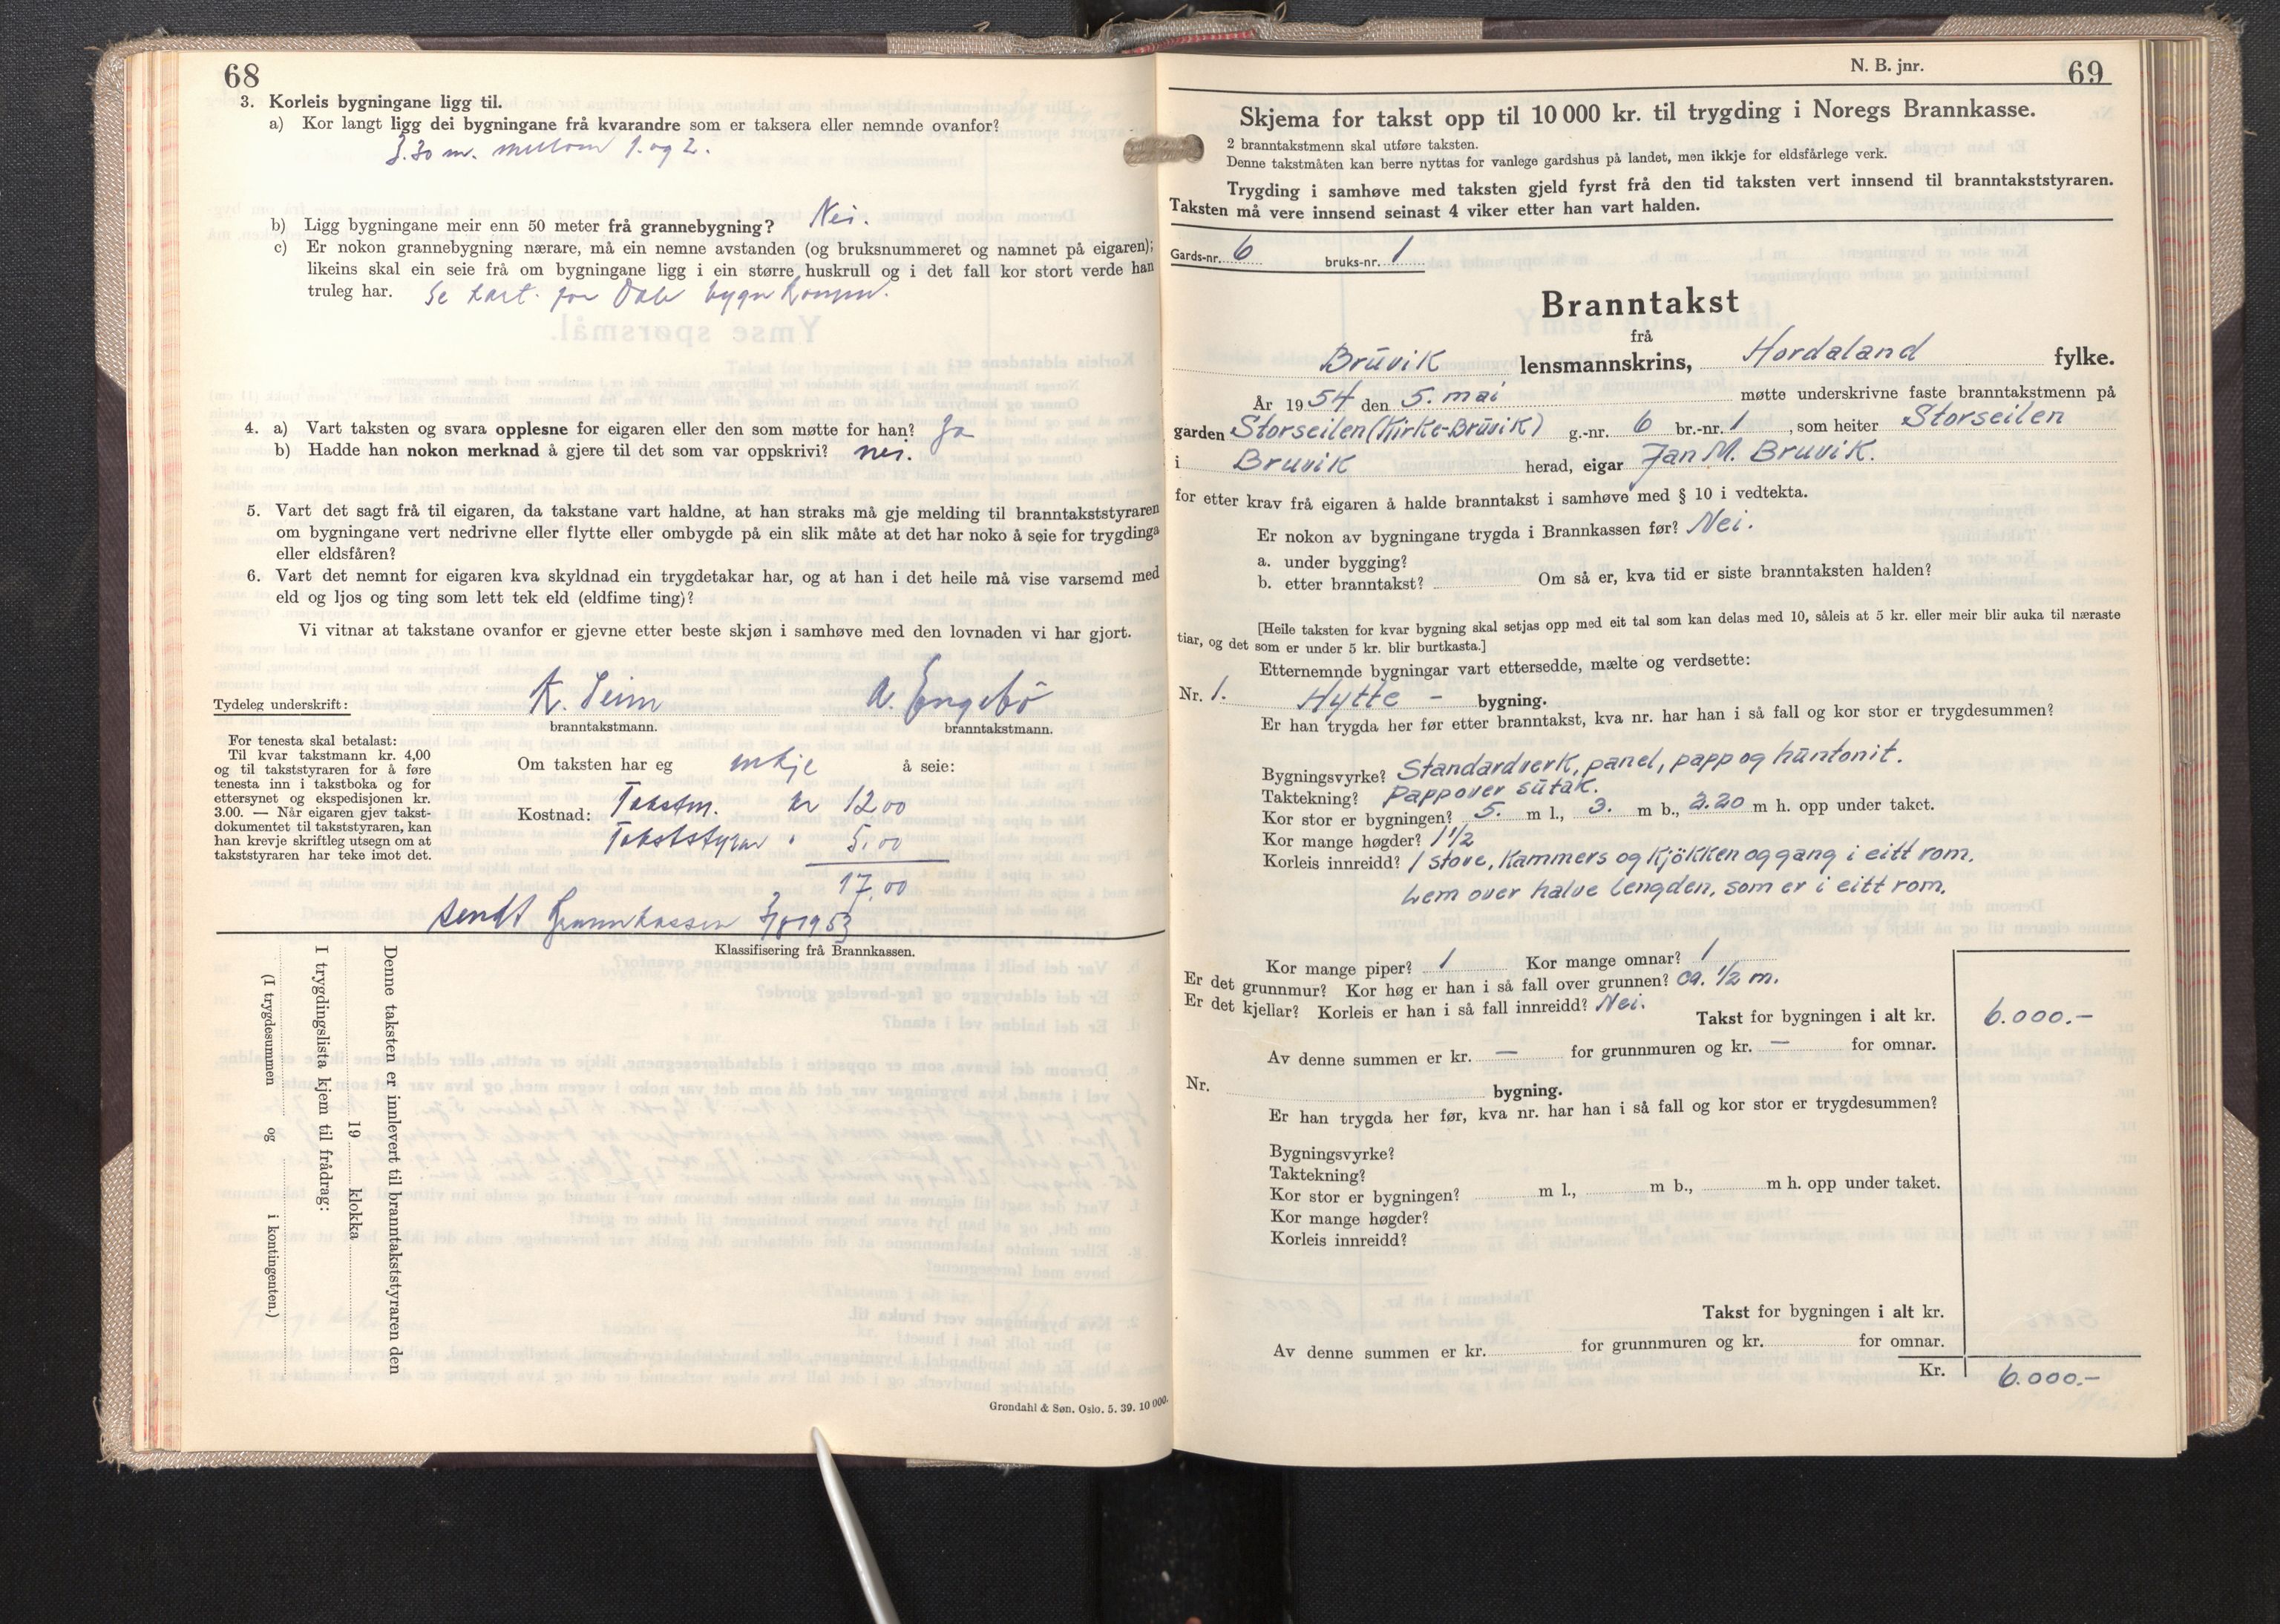 68
3. Korleis bygningane ligg til.
a) Kor langt ligg dei bygningane frå kvarandre som er taksera eller nemnde ovanfor?
3.30 m. mellom 1. og 2.
b) Ligg bygningane meir enn 50 meter frå grannebygning? Nei.
c) Er nokon grannebygning nærare, må ein nemne avstanden (og bruksnummeret og namnet på eigaren);
likeins skal ein seie frå om bygningane ligg i ein større huskrull og i det fall kor stort verde han
truleg har. Se kart for Dale bygn komm.
4. a) Vart taksten og svara opplesne for eigaren eller den som møtte for han? Ja
b) Hadde han nokon merknad å gjere til det som var oppskrivi? nei.
5. Vart det sagt frå til eigaren, da takstane vart haldne, at han straks må gje melding til branntakststyraren
om bygningane vert nedrivne eller flytte eller ombygde på ein slik måte at det har noko å seie for trygdinga
eller eldsfåren?
6. Vart det nemnt for eigaren kva skyldnad ein trygdetakar har, og at han i det heile må vise varsemd med
eld og ljos og ting som lett tek eld (eldfime ting)?
Vi vitnar at takstane ovanfor er gjevne etter beste skjøn i samhøve med den lovnaden vi har gjort.
Tydeleg underskrift: K. Seim A. Engebö
branntakstmann. branntakstmann.
For tenesta skal betalast:
Til kvar takstmann kr. 4,00
og til takststyraren for å føre
tenesta inn i takstboka og for
ettersynet og ekspedisjonen kr.
3.00. — Når eigaren gjev takst-
dokumentet til takststyraren, kan
han krevje skriftleg utsegn om at
takststyraren har teke imot det.
Om taksten har eg inkje å seie:
Kostnad: Takstm. kr 12.00
Takststyrar " 5.00
17.00
sendt Brannkassen 3/8 1953
Klassifisering frå Brannkassen.
Denne taksten er innlevert til branntakststyraren den
19 klokka
I trygdingslista kjem til frådrag:
(I trygdesummen og i kontingenten.)
Grøndahl & Søn. Oslo. 5. 39. 10 000.
N. B. jnr. 69
Skjema for takst opp til 10 000 kr. til trygding i Noregs Brannkasse.
2 branntakstmenn skal utføre taksten.
Denne takstmåten kan berre nyttas for vanlege gardshus på landet, men ikkje for eldsfårlege verk.
Trygding i samhøve med taksten gjeld fyrst frå den tid taksten vert innsend til branntakststyraren.
Taksten må vere innsend seinast 4 viker etter han vart halden.
Gards-nr. 6 bruks-nr. 1
Branntakst
frå
Brüvik lensmannskrins, Hordaland fylke.
År 1954 den 5. mai møtte underskrivne faste branntakstmenn på
garden Storseilen (Kirke-Brüvik) g.-nr. 6 br.-nr. 1, som heiter Storseilen
i Bruvik herad, eigar Jan M. Bruvik.
for etter krav frå eigaren å halde branntakst i samhøve med § 10 i vedtekta.
Er nokon av bygningane trygda i Brannkassen før? Nei.
a. under bygging?
b. etter branntakst? Om så er, kva tid er siste branntaksten halden?
[Heile taksten for kvar bygning skal setjas opp med eit tal som kan delas med 10, såleis at 5 kr. eller meir blir auka til næraste
tiar, og det som er under 5 kr. blir burtkasta.]
Etternemnde bygningar vart ettersedde, mælte og verdsette:
Nr. 1. Hytte - bygning.
Er han trygda her før etter branntakst, kva nr. har han i så fall og kor stor er trygdesummen?
Bygningsvyrke? Standardverk, panel, papp og hüntonit.
Taktekning? Papp over sütak.
Kor stor er bygningen? 5. m l., 3. m b., 2.20 m h. opp under taket.
Kor mange høgder? 1 1/2
Korleis innreidd? 1 stove, kammers og kjökken og gang i eitt rom.
Lem over halve lengden, som er i eitt rom.
Kor mange piper? 1 Kor mange omnar? 1
Er det grunnmur? Kor høg er han i så fall over grunnen? ca. 1/2 m.
Er det kjellar? Korleis er han i så fall innreidd? Nei.
Takst for bygningen i alt kr. 6.000.-
Av denne summen er kr. — for grunnmuren og kr. — for omnar.
Nr. bygning.
Er han trygda her før, kva nr. har han i så fall og kor stor er trygdesummen?
Bygningsvyrke?
Taktekning?
Kor stor er bygningen? m l., m b., m h. opp under taket.
Kor mange høgder?
Korleis innreidd?
Takst for bygningen i alt kr.
Av denne summen er kr. for grunnmuren og kr. for omnar.
Kr. 6.000.-